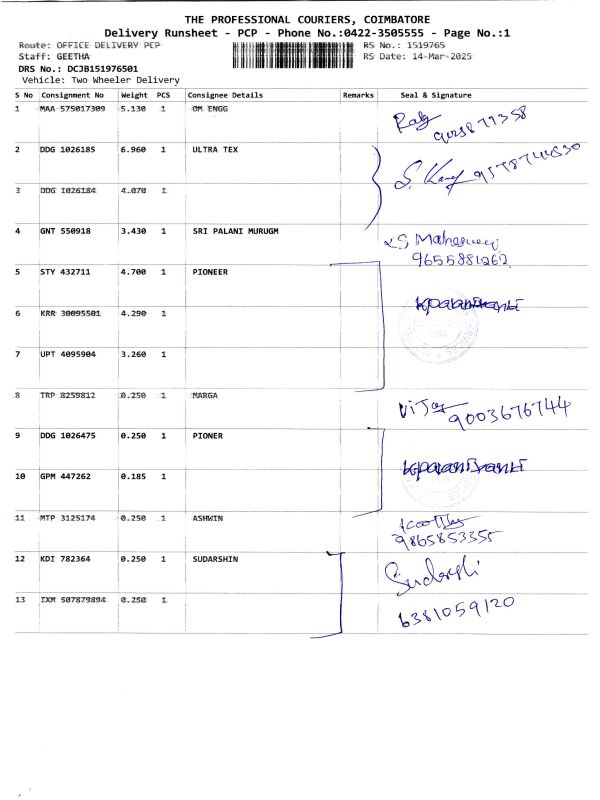 THE PROFESSIONAL COURIERS, COIMBATORE
Delivery Runsheet - PCP - Phone No.:0422-3505555 - Page No.:1
Route: OFFICE DELIVERY PCP RS No.: 1519765
Staff: GEETHA RS Date: 14-Mar-2025
DRS No.: DCJB151976501
Vehicle: Two Wheeler Delivery
S No Consignment No Weight PCS Consignee Details Remarks Seal & Signature
1 MAA 575017309 5.130 1 OM ENGG
2 DDG 1026185 6.960 1 ULTRA TEX
3 DDG 1026184 4.070 1
4 GNT 550918 3.430 1 SRI PALANI MURUGM
9655881262
5 STY 432711 4.700 1 PIONEER
6 KRR 30095501 4.290 1
7 UPT 4095904 3.260 1
8 TRP 8259812 0.250 1 MARGA
9003676744
9 DDG 1026475 0.250 1 PIONER
10 GPM 447262 0.185 1
11 MTP 3125174 0.250 1 ASHWIN
9865853355
12 KDI 782364 0.250 1 SUDARSHIN
13 IXM 507879894 0.250 1
6381059120